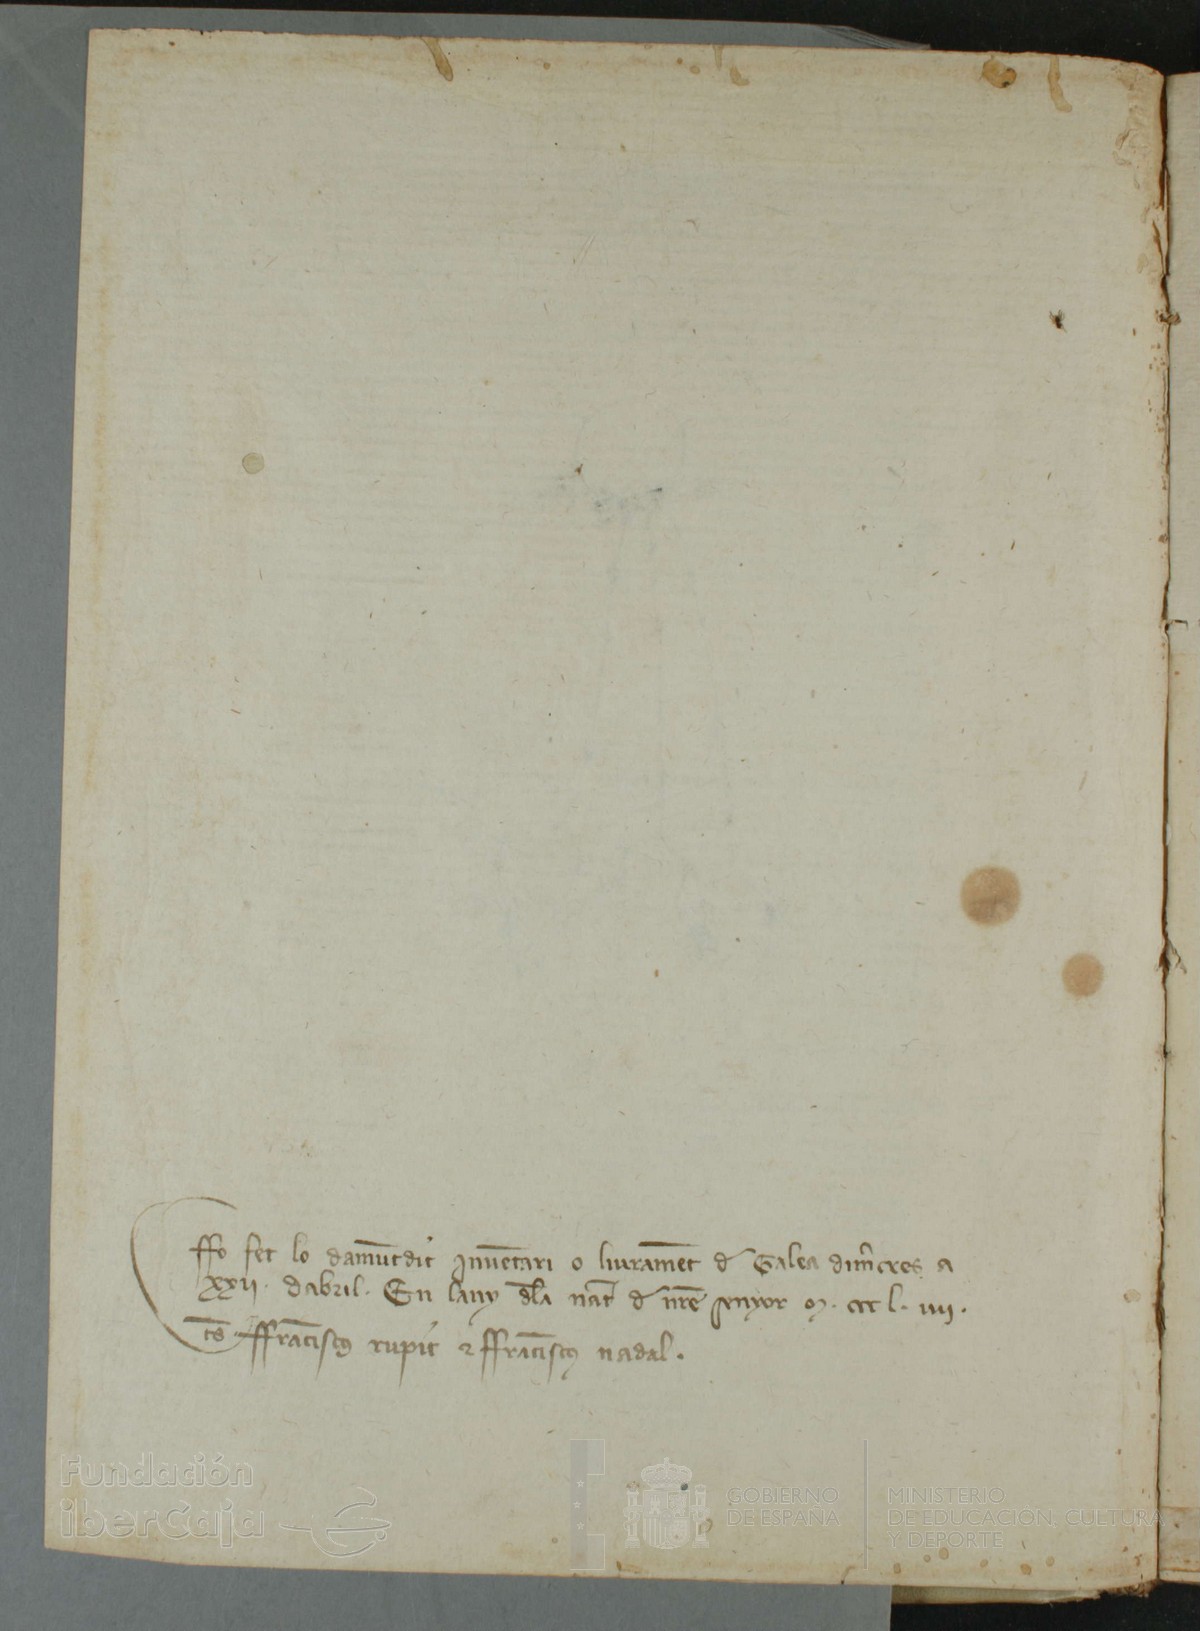 ffo fet lo damūtdit Inuētari o liuramēt d Galea dim̄cres a
xxii · dabril · En lany dla nat̄ d nr̄e senyor m · ccc l · iiii ·
ts̄ ffrācischꝰ rupit ⁊ ffrācischꝰ nadal ·
Fundación
iberCaja
GOBIERNO
DE ESPAÑA
MINISTERIO
DE EDUCACIÓN, CULTURA
Y DEPORTE